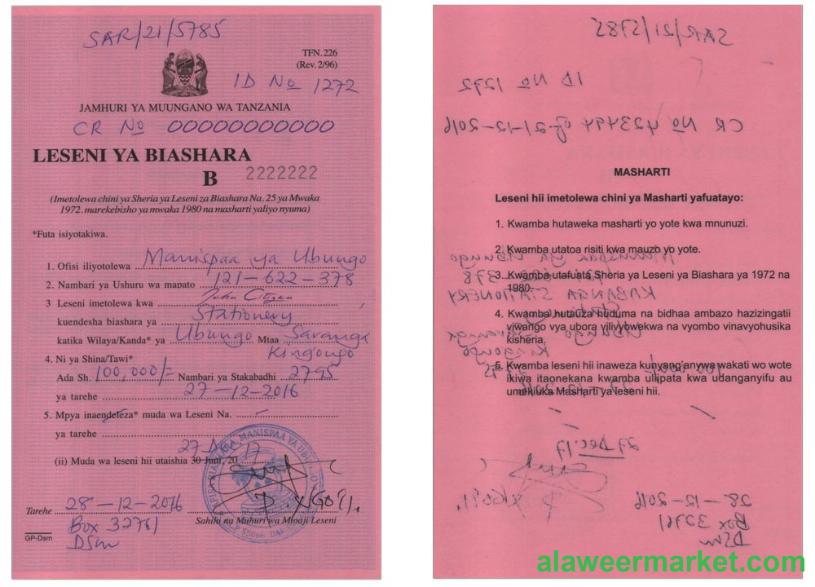 SAR/21/5785
TFN. 226
(Rev. 2/96)
ID No 1272
JAMHURI YA MUUNGANO WA TANZANIA
CR No 00000000000
LESENI YA BIASHARA
B 2222222
(Imetolewa chini ya Sheria ya Leseni za Biashara Na. 25 ya Mwaka
1972. marekebisho ya mwaka 1980 na masharti yaliyo nyuma)
*Futa isiyotakiwa.
1. Ofisi iliyotolewa Manispaa ya Ubungo
2. Nambari ya Ushuru wa mapato 121-622-378
3 Leseni imetolewa kwa John Citizen
kuendesha biashara ya Stationery
katika Wilaya/Kanda* ya Ubungo Mtaa Saranga
Kingongo
4. Ni ya Shina/Tawi*
Ada Sh. 100,000/= Nambari ya Stakabadhi 2795
ya tarehe 27-12-2016
5. Mpya inaendeleza* muda wa Leseni Na.
ya tarehe
27 Dec 17
(ii) Muda wa leseni hii utaishia 30 Juni, 20
Tarehe 28-12-2016
Sahihi na Muhuri wa Mtoaji Leseni
Box 32761
DSm
GP-Dsm
SAR/21/5785
ID No 1272
CR No 423494 of 21-12-2016
MASHARTI
Leseni hii imetolewa chini ya Masharti yafuatayo:
1. Kwamba hutaweka masharti yo yote kwa mnunuzi.
2. Kwamba utatoa risiti kwa mauzo yo yote.
3. Kwamba utafuata Sheria ya Leseni ya Biashara ya 1972 na
1980.
KABANGA STATIONERY
4. Kwamba hutauza huduma na bidhaa ambazo hazizingatii
viwango vya ubora vilivyowekwa na vyombo vinavyohusika
kisheria.
5. Kwamba leseni hii inaweza kunyang'anywa wakati wo wote
ikiwa itaonekana kwamba ulilipata kwa udanganyifu au
umekiuka Masharti ya leseni hii.
27 Dec 17
28-12-2016
Box 32761
DSm
alaweermarket.com